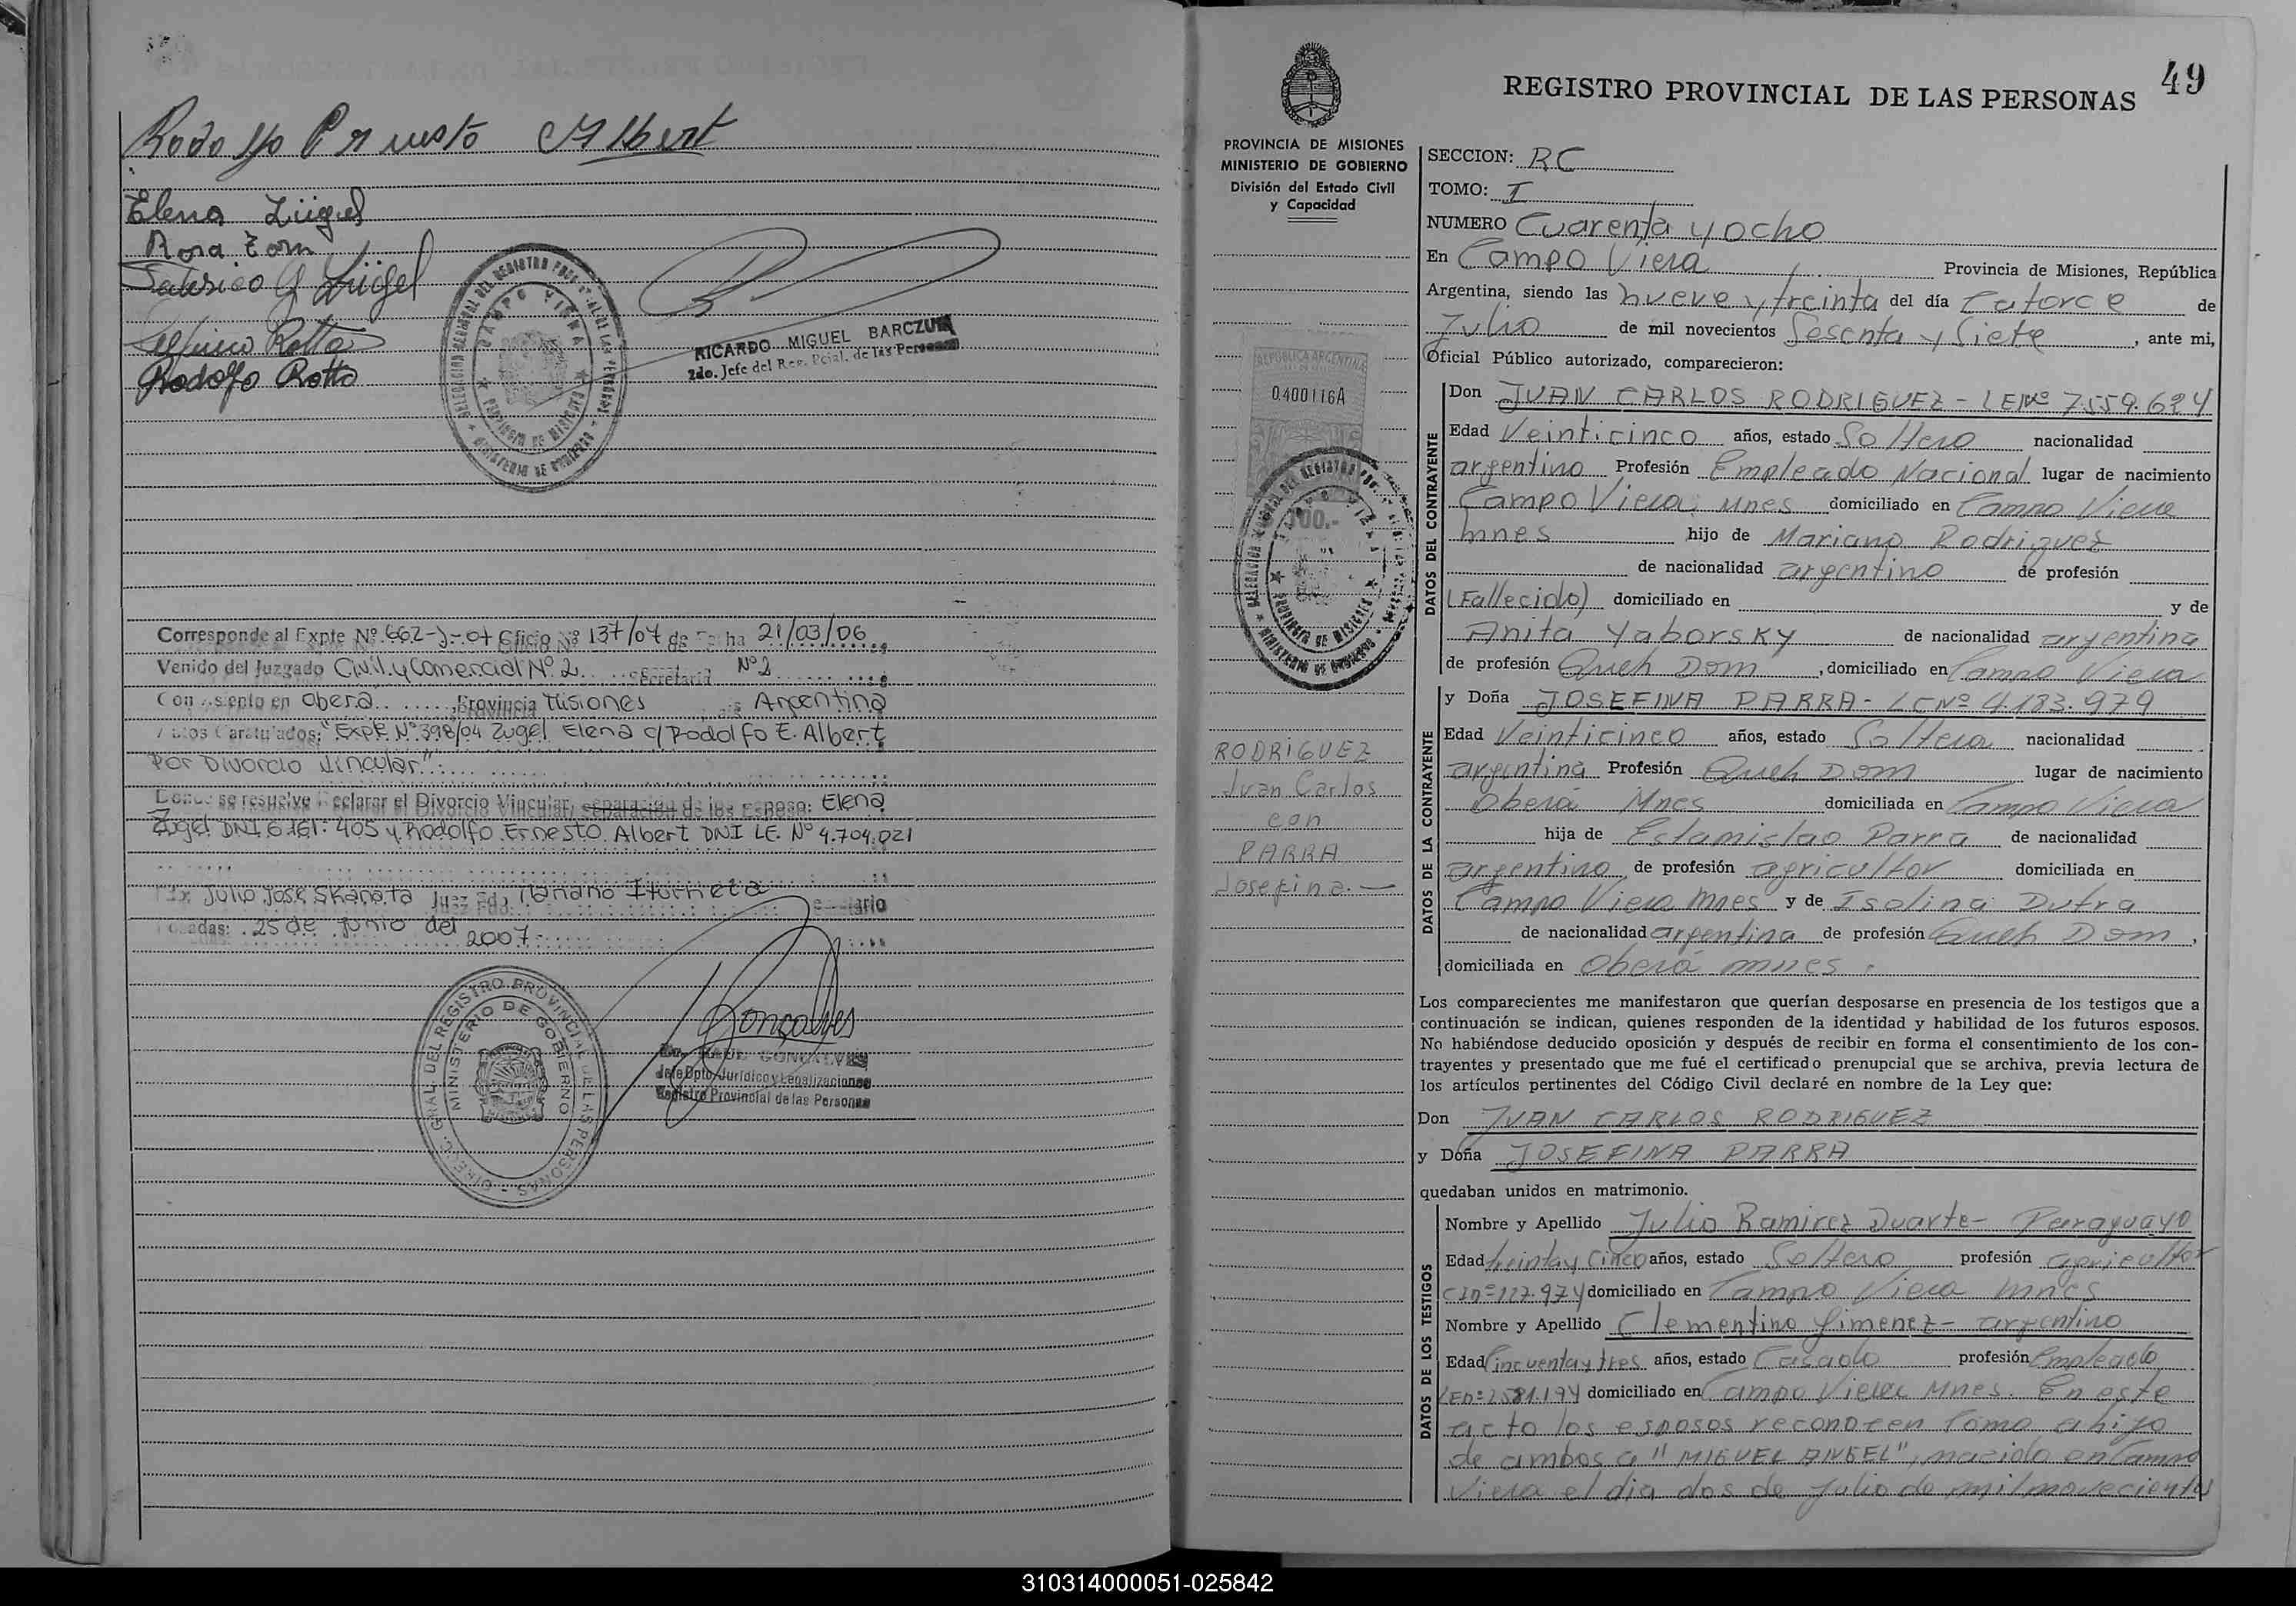 Rodolfo Ernesto Albert
Elena Züigel
Rosa Zorn
Federico G Züigel
Rotta
Rodolfo Rotta
DELEGACION SECCIONAL DEL REGISTRO PROVINCIAL DE LAS PERSONAS
CAMPO VIERA
PROVINCIA DE MISIONES
MINISTERIO DE GOBIERNO
RICARDO MIGUEL BARCZUK
2do. Jefe del Reg. Pcial. de las Personas
Corresponde al Expte Nº 662-J-07 Oficio Nº 137/07 de Fecha 21/03/06
Venido del Juzgado Civil y Comercial Nº 2 Secretaria Nº2
Con asiento en Oberá, Provincia Misiones Argentina
Autos Caratulados: "Expte Nº 398/04 Zugel Elena c/ Rodolfo E. Albert
Por Divorcio Vincular".
Donde se resuelve Declarar el Divorcio Vincular, separación de los Esposo: Elena
Zugel DNI 6.161.405 y Rodolfo Ernesto Albert DNI LE. Nº 4.704.021
Fdo: Julio Jose Skanata Juez Fdo. Mariano Iturrieta Secretario
Posadas: 25 de Junio del 2007
DIREC. GRAL. DEL REGISTRO PROVINCIAL DE LAS PERSONAS
MINISTERIO DE GOBIERNO
Gonçalves
RAUL GONCALVES
Jefe Dpto. Jurídico y Legalizaciones
Registro Provincial de las Personas
49
REGISTRO PROVINCIAL DE LAS PERSONAS
PROVINCIA DE MISIONES
MINISTERIO DE GOBIERNO
División del Estado Civil
y Capacidad
REPUBLICA ARGENTINA
0400116A
100.-
DELEGACION SECCIONAL DEL REGISTRO
PROVINCIA DE MISIONES
MINISTERIO DE GOBIERNO
RODRIGUEZ
Juan Carlos
con
PARRA
Josefina.—
SECCION: RC
TOMO: I
NUMERO Cuarenta y ocho
En Campo Viera Provincia de Misiones, República
Argentina, siendo las nueve y treinta del día Catorce de
Julio de mil novecientos Sesenta y Siete, ante mi,
Oficial Público autorizado, comparecieron:
DATOS DEL CONTRAYENTE
Don JUAN CARLOS RODRIGUEZ - LE Nº 7559.624
Edad Veinticinco años, estado Soltero nacionalidad
argentino Profesión Empleado Nacional lugar de nacimiento
Campo Viera, Mnes domiciliado en Campo Viera
Mnes hijo de Mariano Rodriguez
de nacionalidad argentino de profesión
(Fallecido) domiciliado en y de
Anita Yaborsky de nacionalidad argentina
de profesión Queh Dom, domiciliado en Campo Viera
DATOS DE LA CONTRAYENTE
y Doña JOSEFINA PARRA - LC Nº 4.183.979
Edad Veinticinco años, estado Soltera nacionalidad
argentina Profesión Queh Dom lugar de nacimiento
Oberá Mnes domiciliada en Campo Viera
hija de Estamislao Parra de nacionalidad
argentino de profesión agricultor domiciliada en
Campo Viera Mnes y de Isolina Dutra
de nacionalidad argentina de profesión Queh Dom,
domiciliada en Oberá mnes.
Los comparecientes me manifestaron que querían desposarse en presencia de los testigos que a
continuación se indican, quienes responden de la identidad y habilidad de los futuros esposos.
No habiéndose deducido oposición y después de recibir en forma el consentimiento de los con-
trayentes y presentado que me fué el certificado prenupcial que se archiva, previa lectura de
los artículos pertinentes del Código Civil declaré en nombre de la Ley que:
Don JUAN CARLOS RODRIGUEZ
y Doña JOSEFINA PARRA
quedaban unidos en matrimonio.
DATOS DE LOS TESTIGOS
Nombre y Apellido Julio Ramirez Duarte - Paraguayo
Edad treinta y Cinco años, estado Soltero profesión agricultor
CI nº 127.974 domiciliado en Campo Viera Mnes
Nombre y Apellido Clementino Gimenez - argentino
Edad Cincuenta y tres años, estado Casado profesión Empleado
LE nº 2581.194 domiciliado en Campo Viera Mnes. En este
acto los esposos reconocen como a hijo
de ambos a "MIGUEL ANGEL", nacido en Campo
Viera el dia dos de Julio de mil novecientos
310314000051-025842